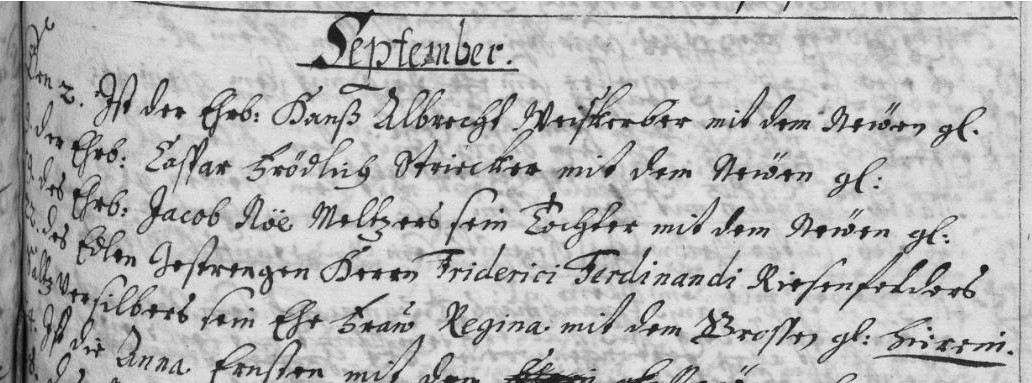 September.
Den 2. Ist der Ehrb: Hanß Albrecht Weißkerber mit dem Newen gl.
der Ehrb: Caspar Frödlich Stricker mit dem Newen gl:
des Ehrb: Jacob Röe Meltzers sein Tochter mit dem Newen gl:
des Edlen Gestrengen Herrn Friderici Ferdinandi Riesenfelders
Saltz Versilbers sein Ehe Fraw Regina mit dem Grossen gl:
Ist die Anna Ernstin mit dem